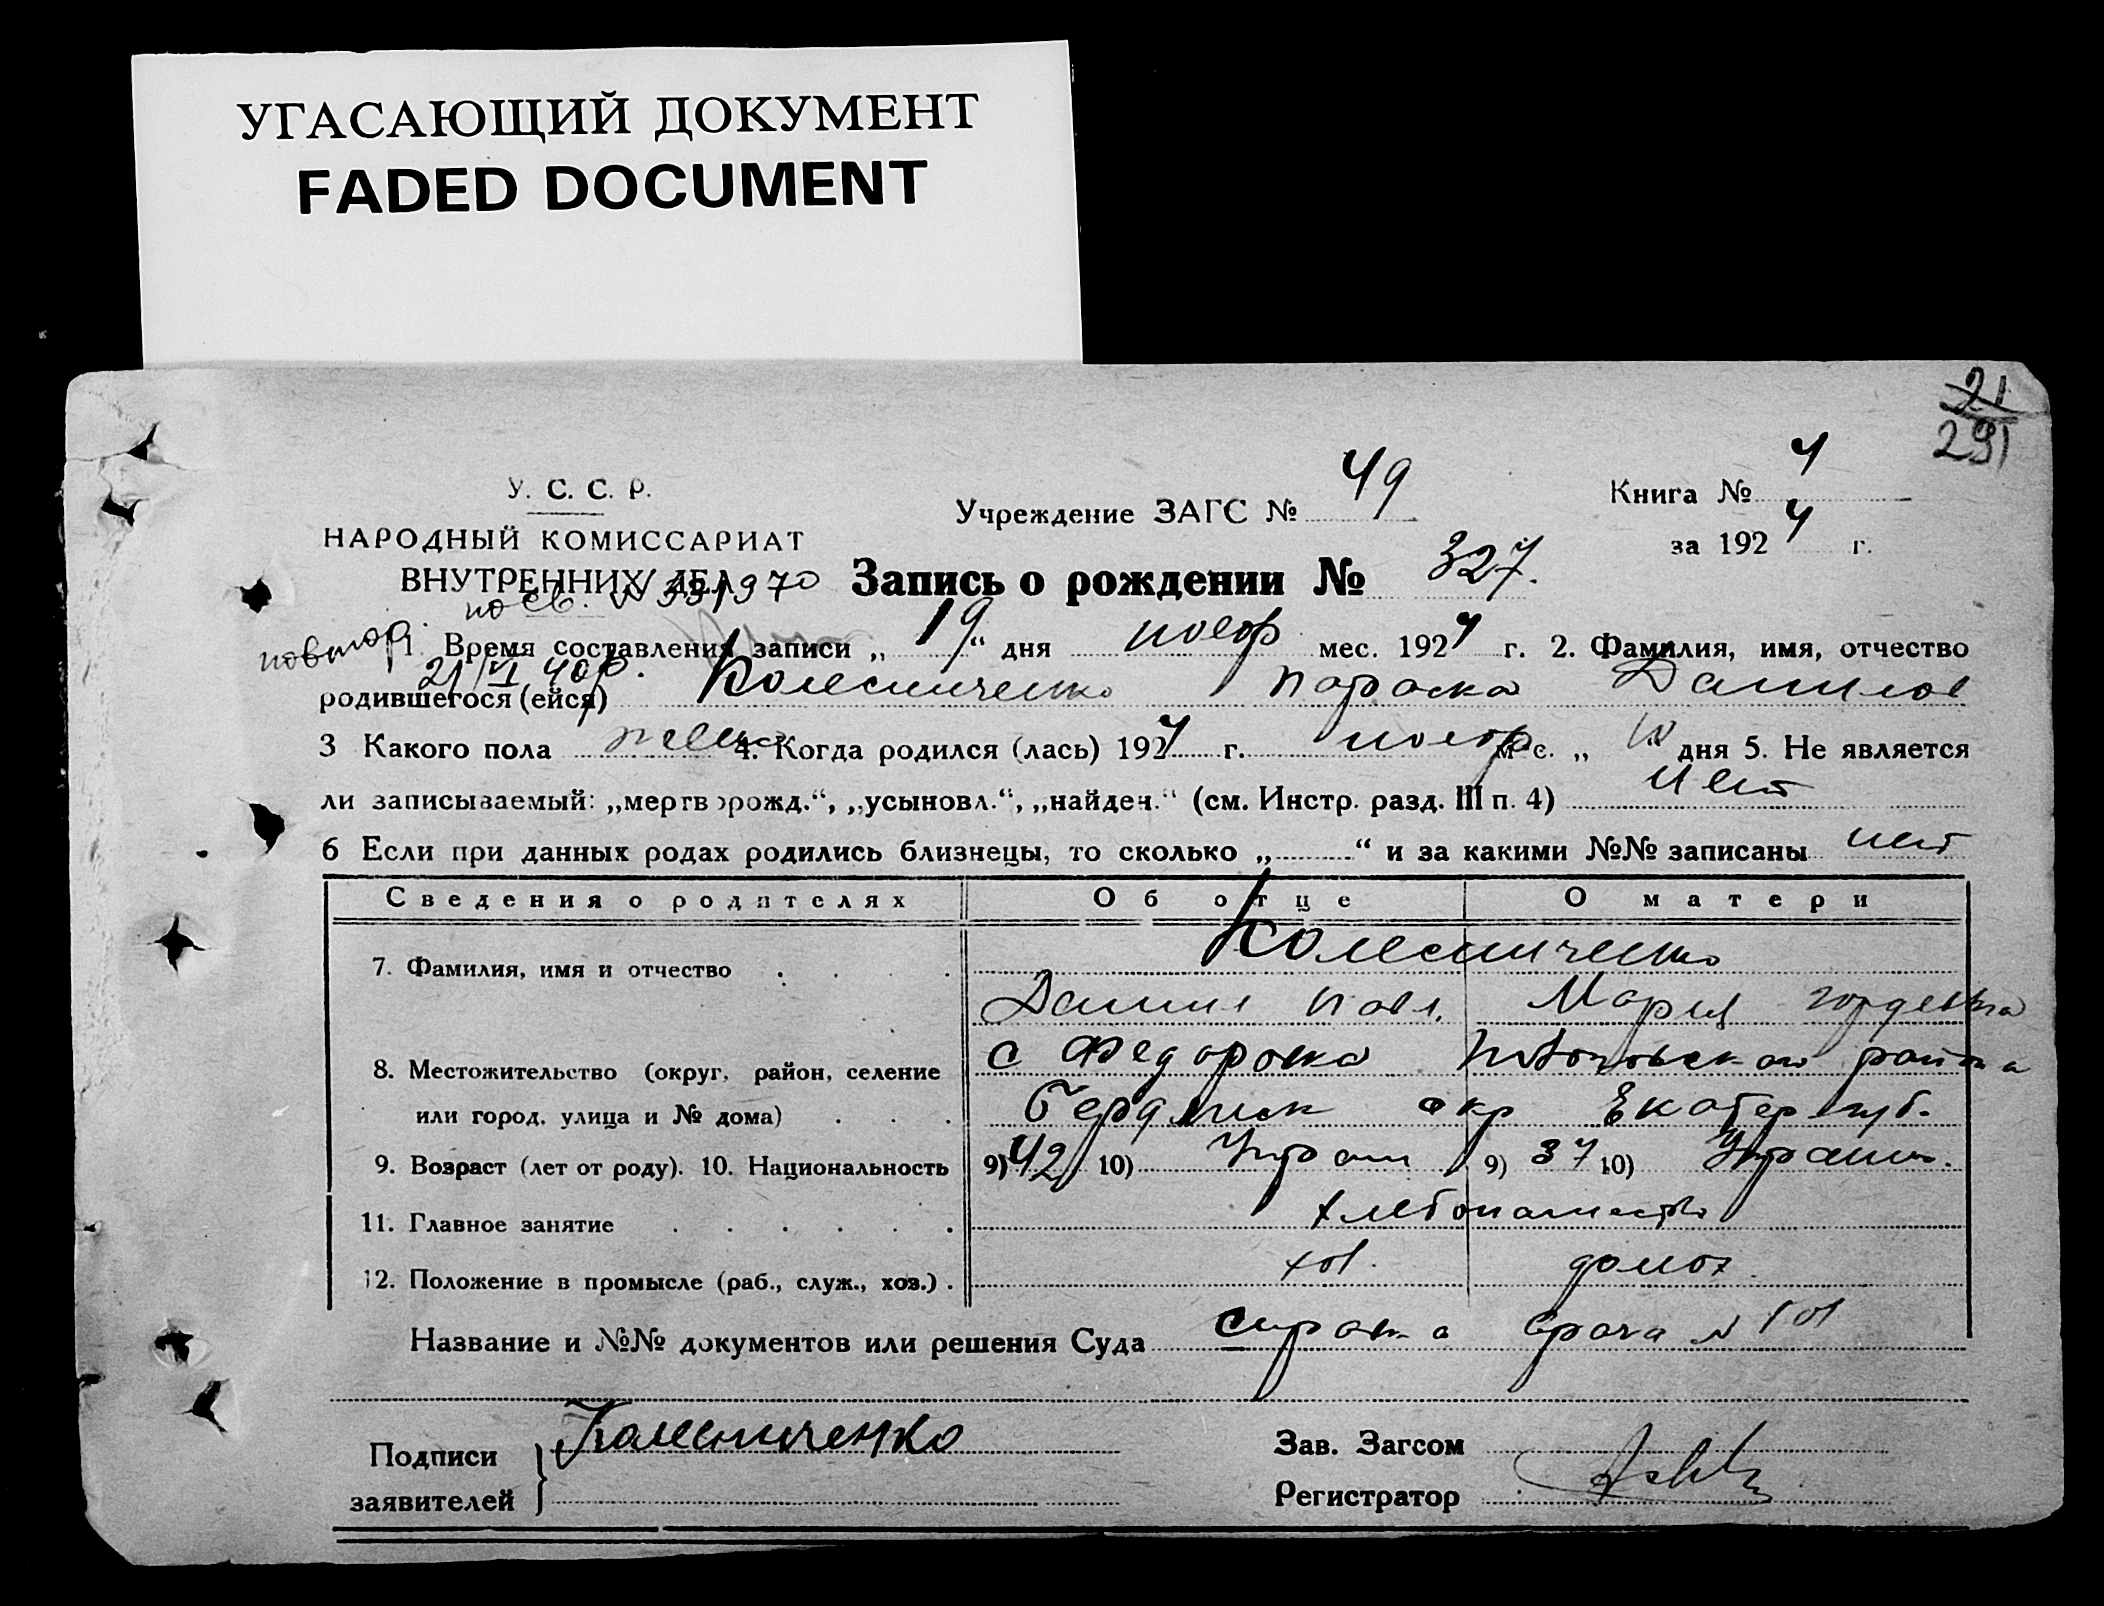 УГАСАЮЩИЙ ДОКУМЕНТ
FADED DOCUMENT
21
291
У. С. С. Р.
НАРОДНЫЙ КОМИССАРИАТ
ВНУТРЕННИХ ДЕЛ
Учреждение ЗАГС № 49
Книга № 4
за 1924 г.
Запись о рождении № 327.
повтор. по св. № 33/970
21/VI 40 р.
1. Время составления записи „19“ дня ноябр мес. 1924 г. 2. Фамилия, имя, отчество
родившегося (ейся) Колесниченко Параска Данилов
3 Какого пола женс 4. Когда родился (лась) 1924 г. ноябр мес. „ “ дня 5. Не является
ли записываемый: „мертворожд.“, „усыновл.“, „найден.“ (см. Инстр. разд. III п. 4) нет
6 Если при данных родах родились близнецы, то сколько „ “ и за какими №№ записаны нет
Сведения о родителях Об отце О матери
7. Фамилия, имя и отчество Колесниченко
Данил Павл. Мария Гордевна
8. Местожительство (округ, район, селение с Федоровка района
или город, улица и № дома) Бердянск окр Екатер губ.
9. Возраст (лет от роду). 10. Национальность 9) 42 10) Украин 9) 37 10) Украин.
11. Главное занятие хлебопашество
12. Положение в промысле (раб., служ., хоз.) хоз. домох.
Название и №№ документов или решения Суда Справка врача № 101
Подписи заявителей Колесниченко
Зав. Загсом
Регистратор